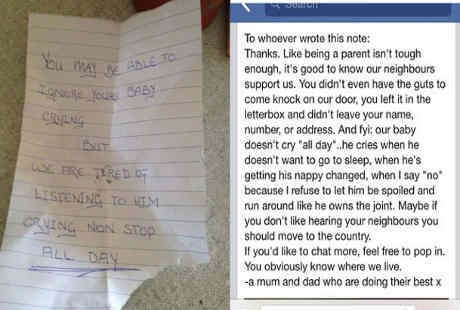 YOU MAY BE ABLE TO
IGNORE YOUR BABY
CRYING
BUT
WE ARE TIRED OF
LISTENING TO HIM
CRYING NON STOP
ALL DAY
Search
To whoever wrote this note:
Thanks. Like being a parent isn't tough
enough, it's good to know our neighbours
support us. You didn't even have the guts to
come knock on our door, you left it in the
letterbox and didn't leave your name,
number, or address. And fyi: our baby
doesn't cry "all day"..he cries when he
doesn't want to go to sleep, when he's
getting his nappy changed, when I say "no"
because I refuse to let him be spoiled and
run around like he owns the joint. Maybe if
you don't like hearing your neighbours you
should move to the country.
If you'd like to chat more, feel free to pop in.
You obviously know where we live.
-a mum and dad who are doing their best x